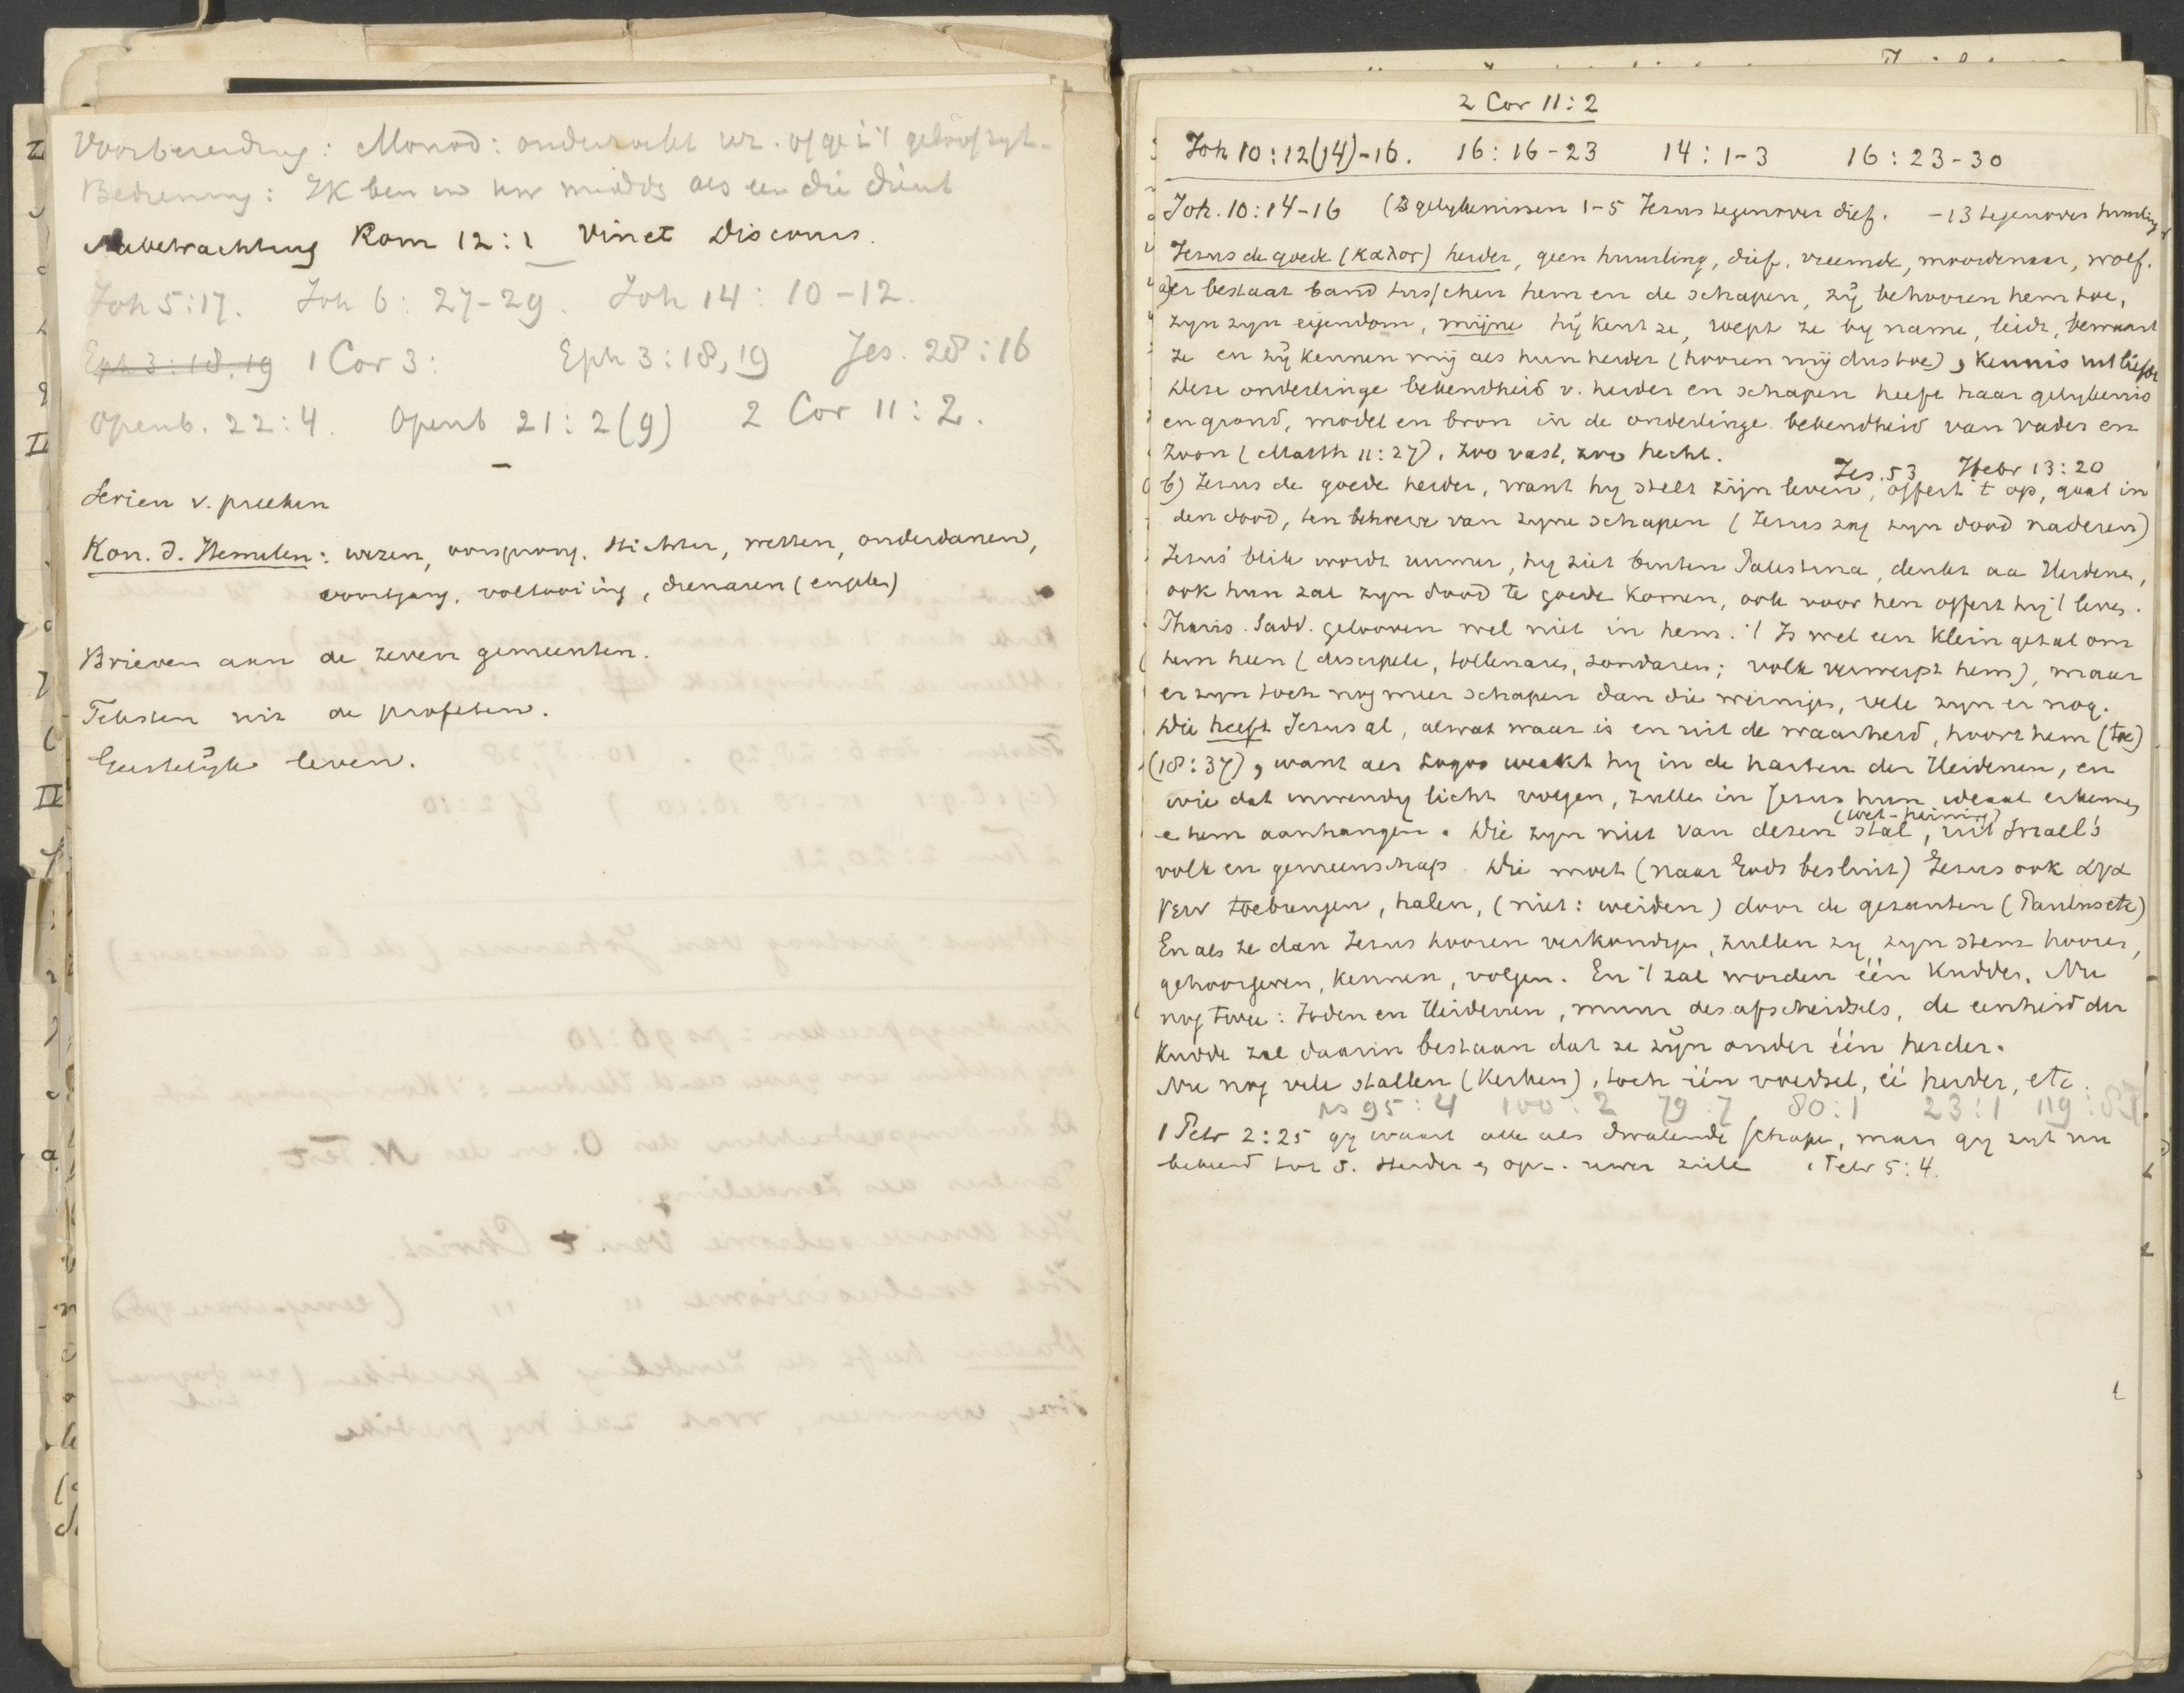 Voorbereiding: Monod: onderzoekt uz. of ge i 't geloof zyt.
Bediening: Ik ben in uw midds als een die dient
Nabetrachting Rom 12:1 Vinet Discours.
Joh 5:17. Joh 6: 27-29. Joh 14: 10-12.
Eph 3:18,19 1 Cor 3: Eph 3:18,19 Jes. 28:16
Openb. 22:4. Openb 21:2(9) 2 Cor 11:2.
Serien v. preeken
Kon. d. Hemelen: wezen, oorsprong, stichter, wetten, onderdanen,
voortgang, voltooiing, dienaren (engelen)
Brieven aan de zeven gemeenten.
Teksten uit de profeten.
Geestelijk leven.
2 Cor 11:2
Joh 10:12(14)-16. 16:16-23 14:1-3 16:23-30
Joh. 10:14-16 (3 gelykenissen 1-5 Jezus tegenover dief. -13 tegenover huurling
Jezus de goede (καλος) herder, geen huurling, dief, vreemde, moordenaar, wolf.
a) er bestaat band tusschen hem en de schapen, zij behooren hem toe,
zyn zyn eigendom, mijne hij kent ze, roept ze by name, leidt, bewaart
ze en zij kennen mij als hun herder (hooren mij dus toe), kennis uit liefde
Deze onderlinge bekendheid v. herder en schapen heeft haar gelykenis
en grond, model en bron in de onderlinge bekendheid van Vader en
Zoon (Matth 11:27), zoo vast, zoo hecht.
Jes. 53 Hebr 13:20
b) Jezus de goede herder, want hy stelt zijn leven, offert 't op, gaat in
den dood, ten behoeve van zyne schapen (Jezus zag zyn dood naderen)
Jezus' blik wordt ruimer, hy ziet buiten Palestina, denkt aa Heidenen,
ook hun zal zyn dood te goede komen, ook voor hen offert hij 't leven.
Phariz. Sadd. gelooven wel niet in hem. 't Is wel een klein getal om
hem heen (discipelen, tollenaren, zondaren; volk verwerpt hem), maar
er zyn toch nog meer schapen dan die weinigen, vele zyn er nog.
Die heeft Jezus al, alwat waar is en uit de waarheid, hoort hem (toe)
(18:37), want als Logos werkt hy in de harten der Heidenen, en
wie dat inwendig licht volgen, zullen in Jezus hun ideaal erkennen
e hem aanhangen. Die zyn niet van dezen stal (wet-heining), uit Israel's
volk en gemeenschap. Die moet (naar Gods besluit) Jezus ook αγα
γειν toebrengen, halen, (niet: weiden) door de gezanten (Paulus etc)
En als ze dan Jezus hooren verkondigen, zullen zy zyn stem hooren,
gehoorzamen, kennen, volgen. En 't zal worden één kudde. Nu
nog twee: Joden en Heidenen, muur des afscheidsels, de eenheid der
kudde zal daarin bestaan dat ze zijn onder één herder.
Nu nog vele stallen (kerken), toch één voedsel, éé herder, etc.
ps 95:4 100:2 79:7 80:1 23:1 119:
1 Petr 2:25 gy waart alle als dwalende schapen, maar gy zyt nu
bekeerd tot d. Herder en opz. uwer ziele 1 Petr 5:4.